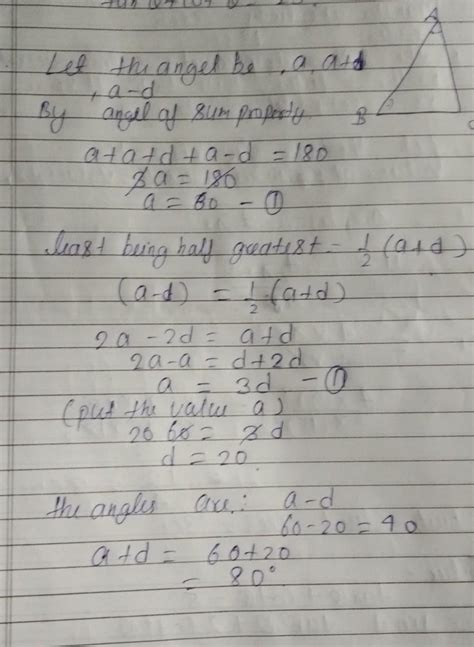 Let the angel be , a, a+d
, a-d
By angel of sum property
A
B
a+a+d+a-d = 180
3a = 180
a = 60 - ①
least being half greatest = 1/2 (a+d)
(a-d) = 1/2 (a+d)
2a - 2d = a+d
2a-a = d+2d
a = 3d - ⑪
(put the value a)
20 60 = 3d
d = 20
the angles are: a-d
60-20 = 40
a+d = 60+20
= 80°